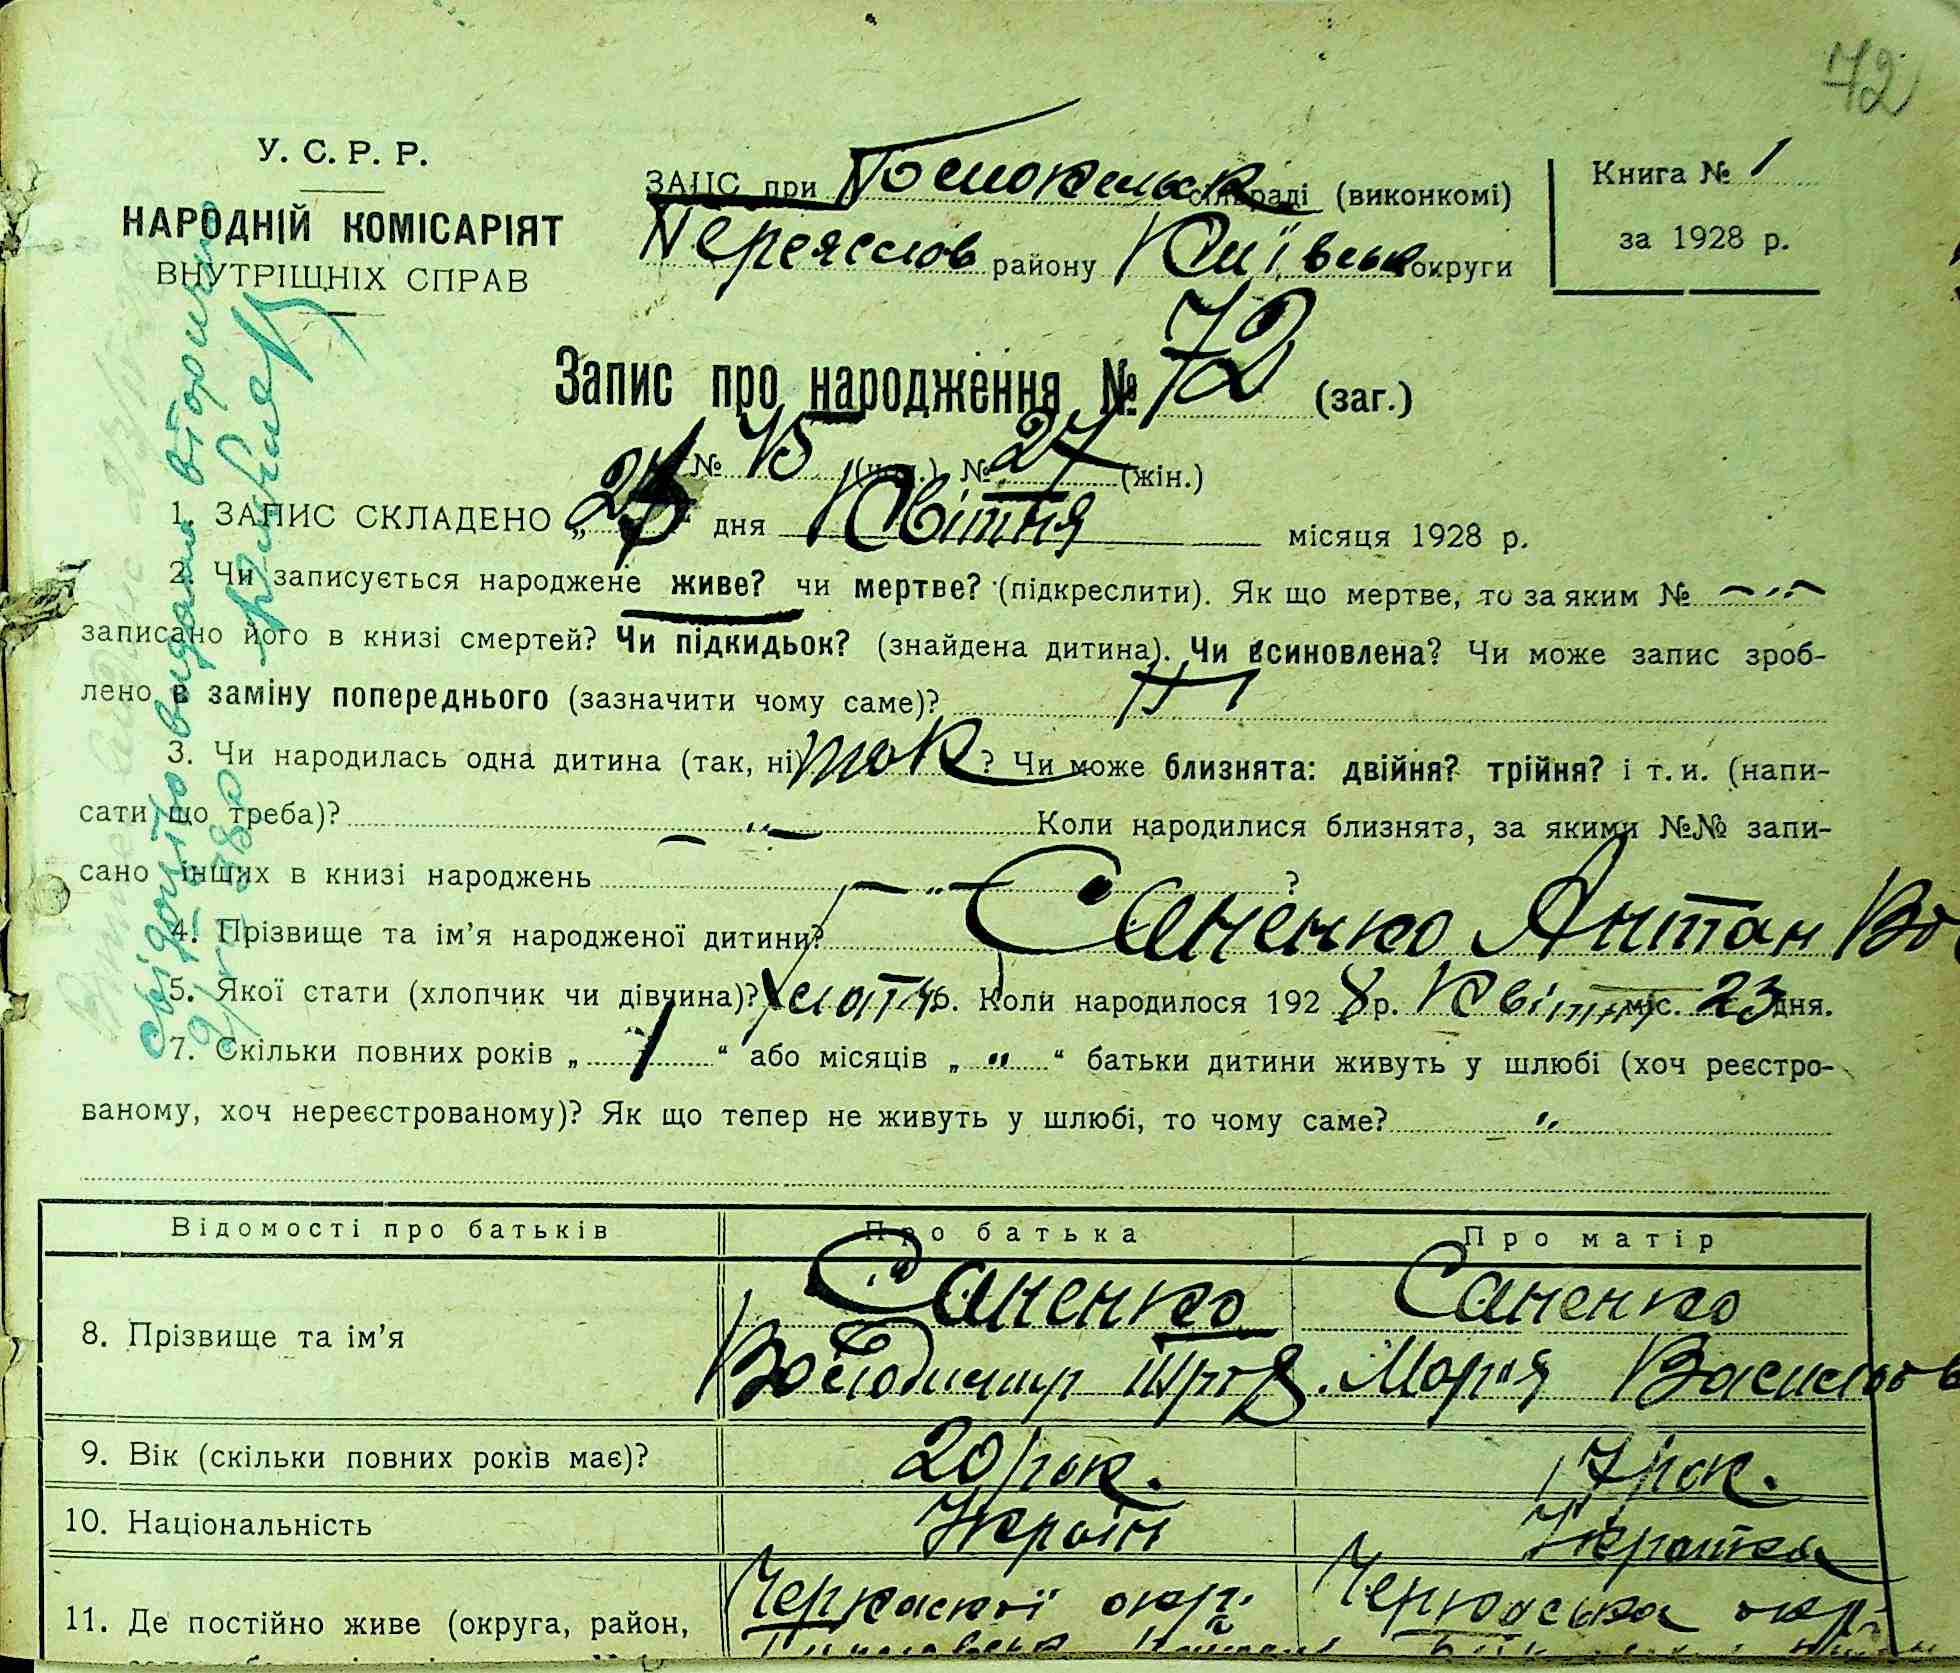 72
У. С. Р. Р.
НАРОДНІЙ КОМІСАРІЯТ
ВНУТРІШНІХ СПРАВ
ЗАПИС при сільраді (виконкомі)
Переяслов району Київськ округи
Книга № 1
за 1928 р.
Запис про народження № 72 (заг.)
№ 45 (чол.) № 27 (жін.)
1. ЗАПИС СКЛАДЕНО „ “ дня Квітня місяця 1928 р.
2. Чи записується народжене живе? чи мертве? (підкреслити). Як що мертве, то за яким №
записано його в книзі смертей? Чи підкидьок? (знайдена дитина). Чи всиновлена? Чи може запис зроб-
лено в заміну попереднього (зазначити чому саме)?
3. Чи народилась одна дитина (так, ні) так? Чи може близнята: двійня? трійня? і т. и. (напи-
сати що треба)? — „ — Коли народилися близнята, за якими №№ запи-
сано інших в книзі народжень — „ — ?
4. Прізвище та ім’я народженої дитини? Саненко Антан Во
5. Якої стати (хлопчик чи дівчина)? хлопч 6. Коли народилося 1928 р. Квітня міс. 23 дня.
7. Скільки повних років „ 1 “ або місяців „ „ “ батьки дитини живуть у шлюбі (хоч реєстро-
ваному, хоч нереєстрованому)? Як що тепер не живуть у шлюбі, то чому саме? „
Відомості про батьків Про батька Про матір
8. Прізвище та ім’я Саненко Володимир Саненко Мария Васильов
9. Вік (скільки повних років має)? 20 рок. 17 рок.
10. Національність Україн Українка
11. Де постійно живе (округа, район, Черкаскої окр. Черкаська окр.
свідоцтво видано вторинно